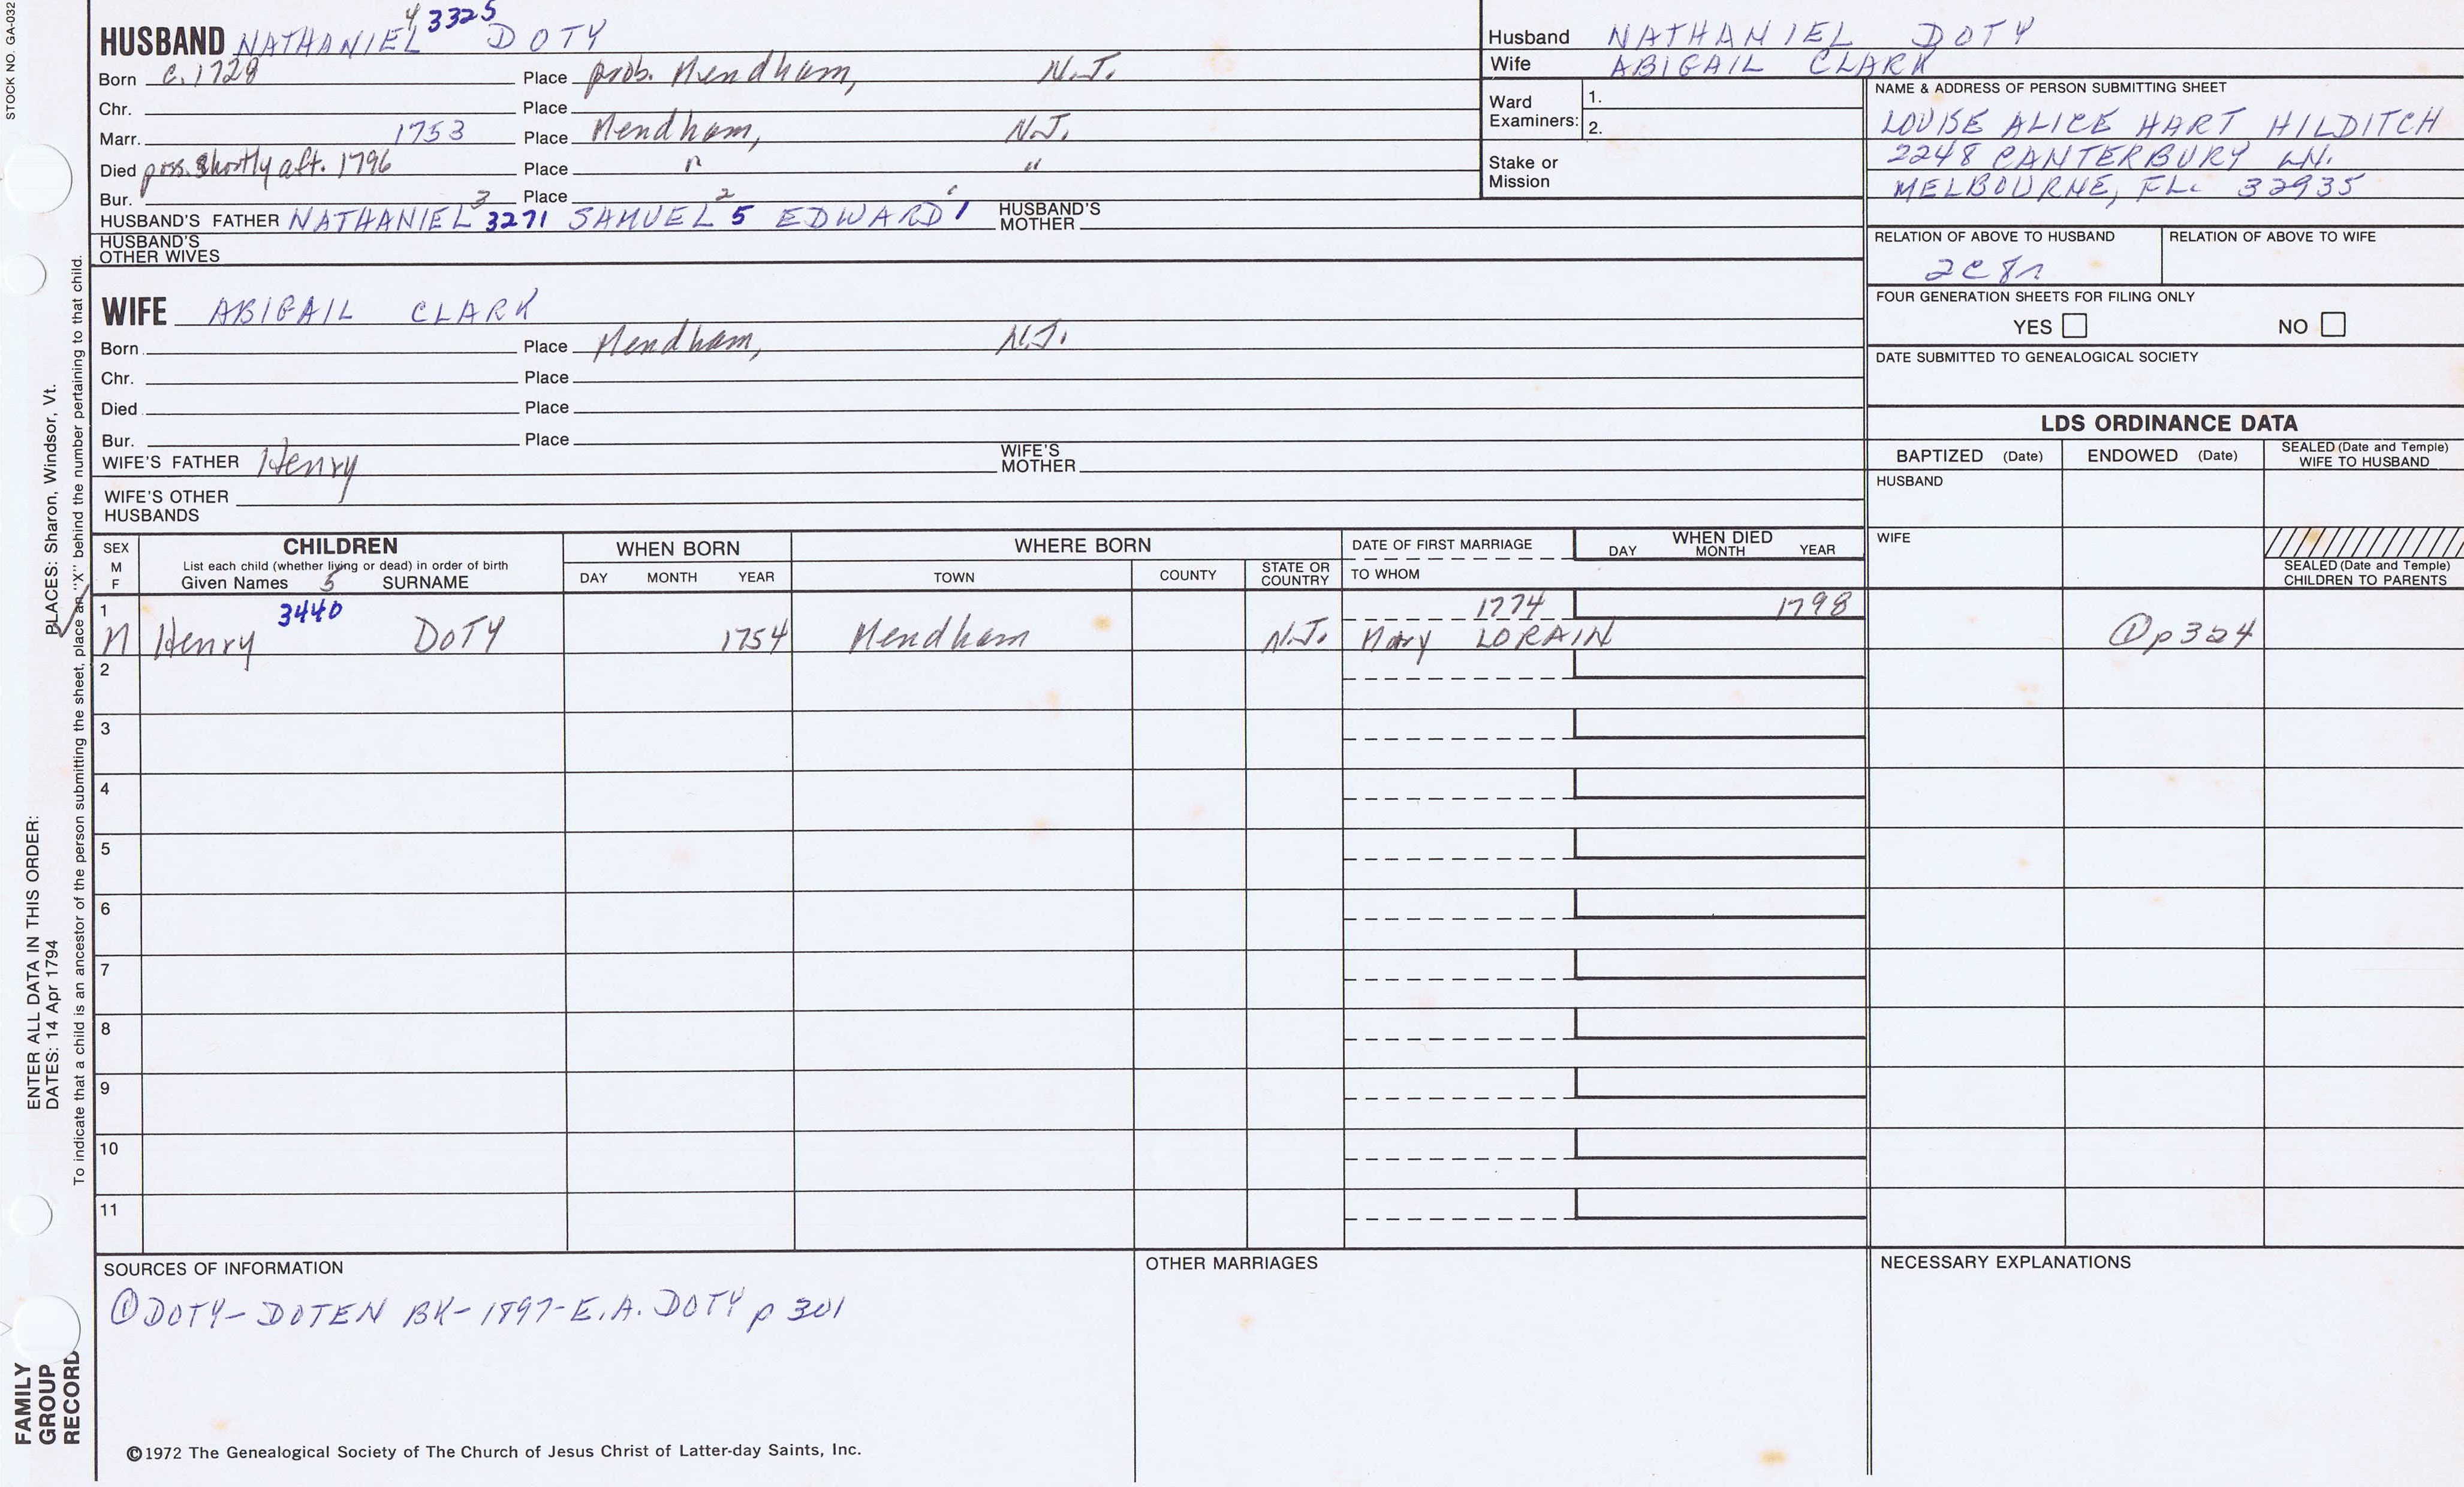 STOCK NO. GA-032
4 3325
HUSBAND NATHANIEL DOTY
Born c. 1728 Place prob. Mendham, N.J.
Chr. Place
Marr. 1753 Place Mendham, N.J.
Died poss. shortly aft. 1796 Place " "
Bur. Place
HUSBAND'S FATHER NATHANIEL 3 3271 SAMUEL 2 5 EDWARD 1 HUSBAND'S MOTHER
HUSBAND'S OTHER WIVES
WIFE ABIGAIL CLARK
Born Place Mendham, N.J.
Chr. Place
Died Place
Bur. Place
WIFE'S FATHER Henry WIFE'S MOTHER
WIFE'S OTHER HUSBANDS
Husband NATHANIEL DOTY
Wife ABIGAIL CLARK
Ward Examiners: 1.
2.
Stake or Mission
NAME & ADDRESS OF PERSON SUBMITTING SHEET
LOUISE ALICE HART HILDITCH
2248 CANTERBURY LN.
MELBOURNE, FL. 32935
RELATION OF ABOVE TO HUSBAND RELATION OF ABOVE TO WIFE
2C8r
FOUR GENERATION SHEETS FOR FILING ONLY
YES NO
DATE SUBMITTED TO GENEALOGICAL SOCIETY
LDS ORDINANCE DATA
BAPTIZED (Date) ENDOWED (Date) SEALED (Date and Temple) WIFE TO HUSBAND
HUSBAND
WIFE
SEALED (Date and Temple) CHILDREN TO PARENTS
SEX M F CHILDREN WHEN BORN WHERE BORN DATE OF FIRST MARRIAGE WHEN DIED
List each child (whether living or dead) in order of birth
Given Names 5 SURNAME DAY MONTH YEAR TOWN COUNTY STATE OR COUNTRY TO WHOM DAY MONTH YEAR
1 3440 1774 1798
M Henry DOTY 1754 Mendham N.J. Mary LORAIN ① p 324
2
3
4
5
6
7
8
9
10
11
SOURCES OF INFORMATION
① DOTY-DOTEN BK-1897-E.A. DOTY p 301
OTHER MARRIAGES
NECESSARY EXPLANATIONS
©1972 The Genealogical Society of The Church of Jesus Christ of Latter-day Saints, Inc.
FAMILY GROUP RECORD
ENTER ALL DATA IN THIS ORDER:
DATES: 14 Apr 1794 PLACES: Sharon, Windsor, Vt.
To indicate that a child is an ancestor of the person submitting the sheet, place an "X" behind the number pertaining to that child.